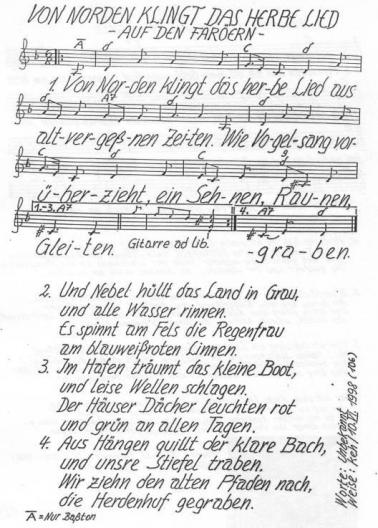 VON NORDEN KLINGT DAS HERBE LIED
- AUF DEN FÄRÖERN -
A d C d
1. Von Nor-den klingt das her-be Lied aus
d A7 d d
alt-ver-geß-nen Zei-ten. Wie Vo-gel-sang vor-
C d C g
ü-ber-zieht, ein Seh-nen, Rau-nen,
1.-3. A7 4. A7 d
Glei-ten. Gitarre ad lib. -gra-ben.
2. Und Nebel hüllt das Land in Grau,
und alle Wasser rinnen.
Es spinnt am Fels die Regenfrau
am blauweißroten Linnen.
3. Im Hafen träumt das kleine Boot,
und leise Wellen schlagen.
Der Häuser Dächer leuchten rot
und grün an allen Tagen.
4. Aus Hängen quillt der klare Bach,
und unsre Stiefel traben.
Wir ziehn den alten Pfaden nach,
die Herdenhuf gegraben.
A = Nur Baßton
Worte: Unbekannt
Weise: Keh/10.XI.1998 (106)